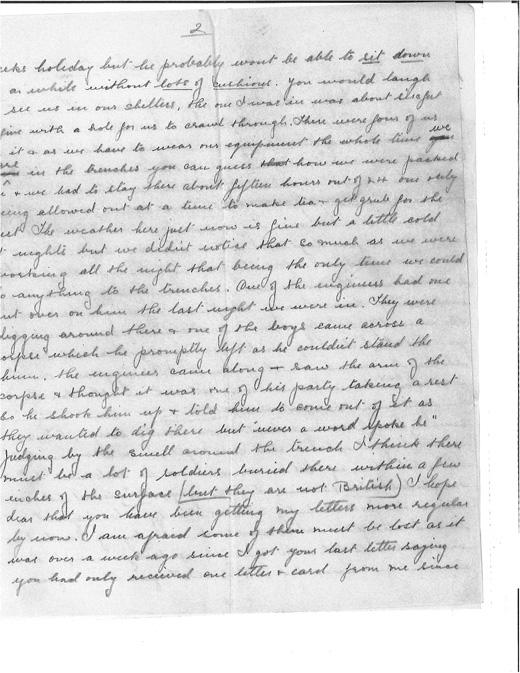 2
eks holiday but he probably wont be able to sit down
a while without lots of cushions. You would laugh
see us in our shelters, the one I was in was about
five with a hole for us to crawl through. There were four of us
it & as we have to wear our equipment the whole time we
in the trenches you can guess that how we were packed
& we had to stay there about fifteen hours out of 24 one only
eing allowed out at a time to make tea & get grub for the
est. The weather here just now is fine but a little cold
t nights but we didn't notice that so much as we were
working all the night that being the only time we could
o anything to the trenches. One of the engineers had one
ut over on him the last night we were in. They were
digging around there & one of the boys came across a
corpse which he promptly left as he couldn't stand the
hum. The engineer came along & saw the arm of the
corpse & thought it was one of his party taking a rest
So he shook him up & told him to come out of it as
they wanted to dig there but "never a word spoke he"
Judging by the smell around the trench I think there
must be a lot of soldiers buried there within a few
inches of the surface (but they are not British) I hope
dear that you have been getting my letters more regular
by now. I am afraid some of them must be lost as it
was over a week ago since I got your last letter saying
you had only received one letter & card from me since